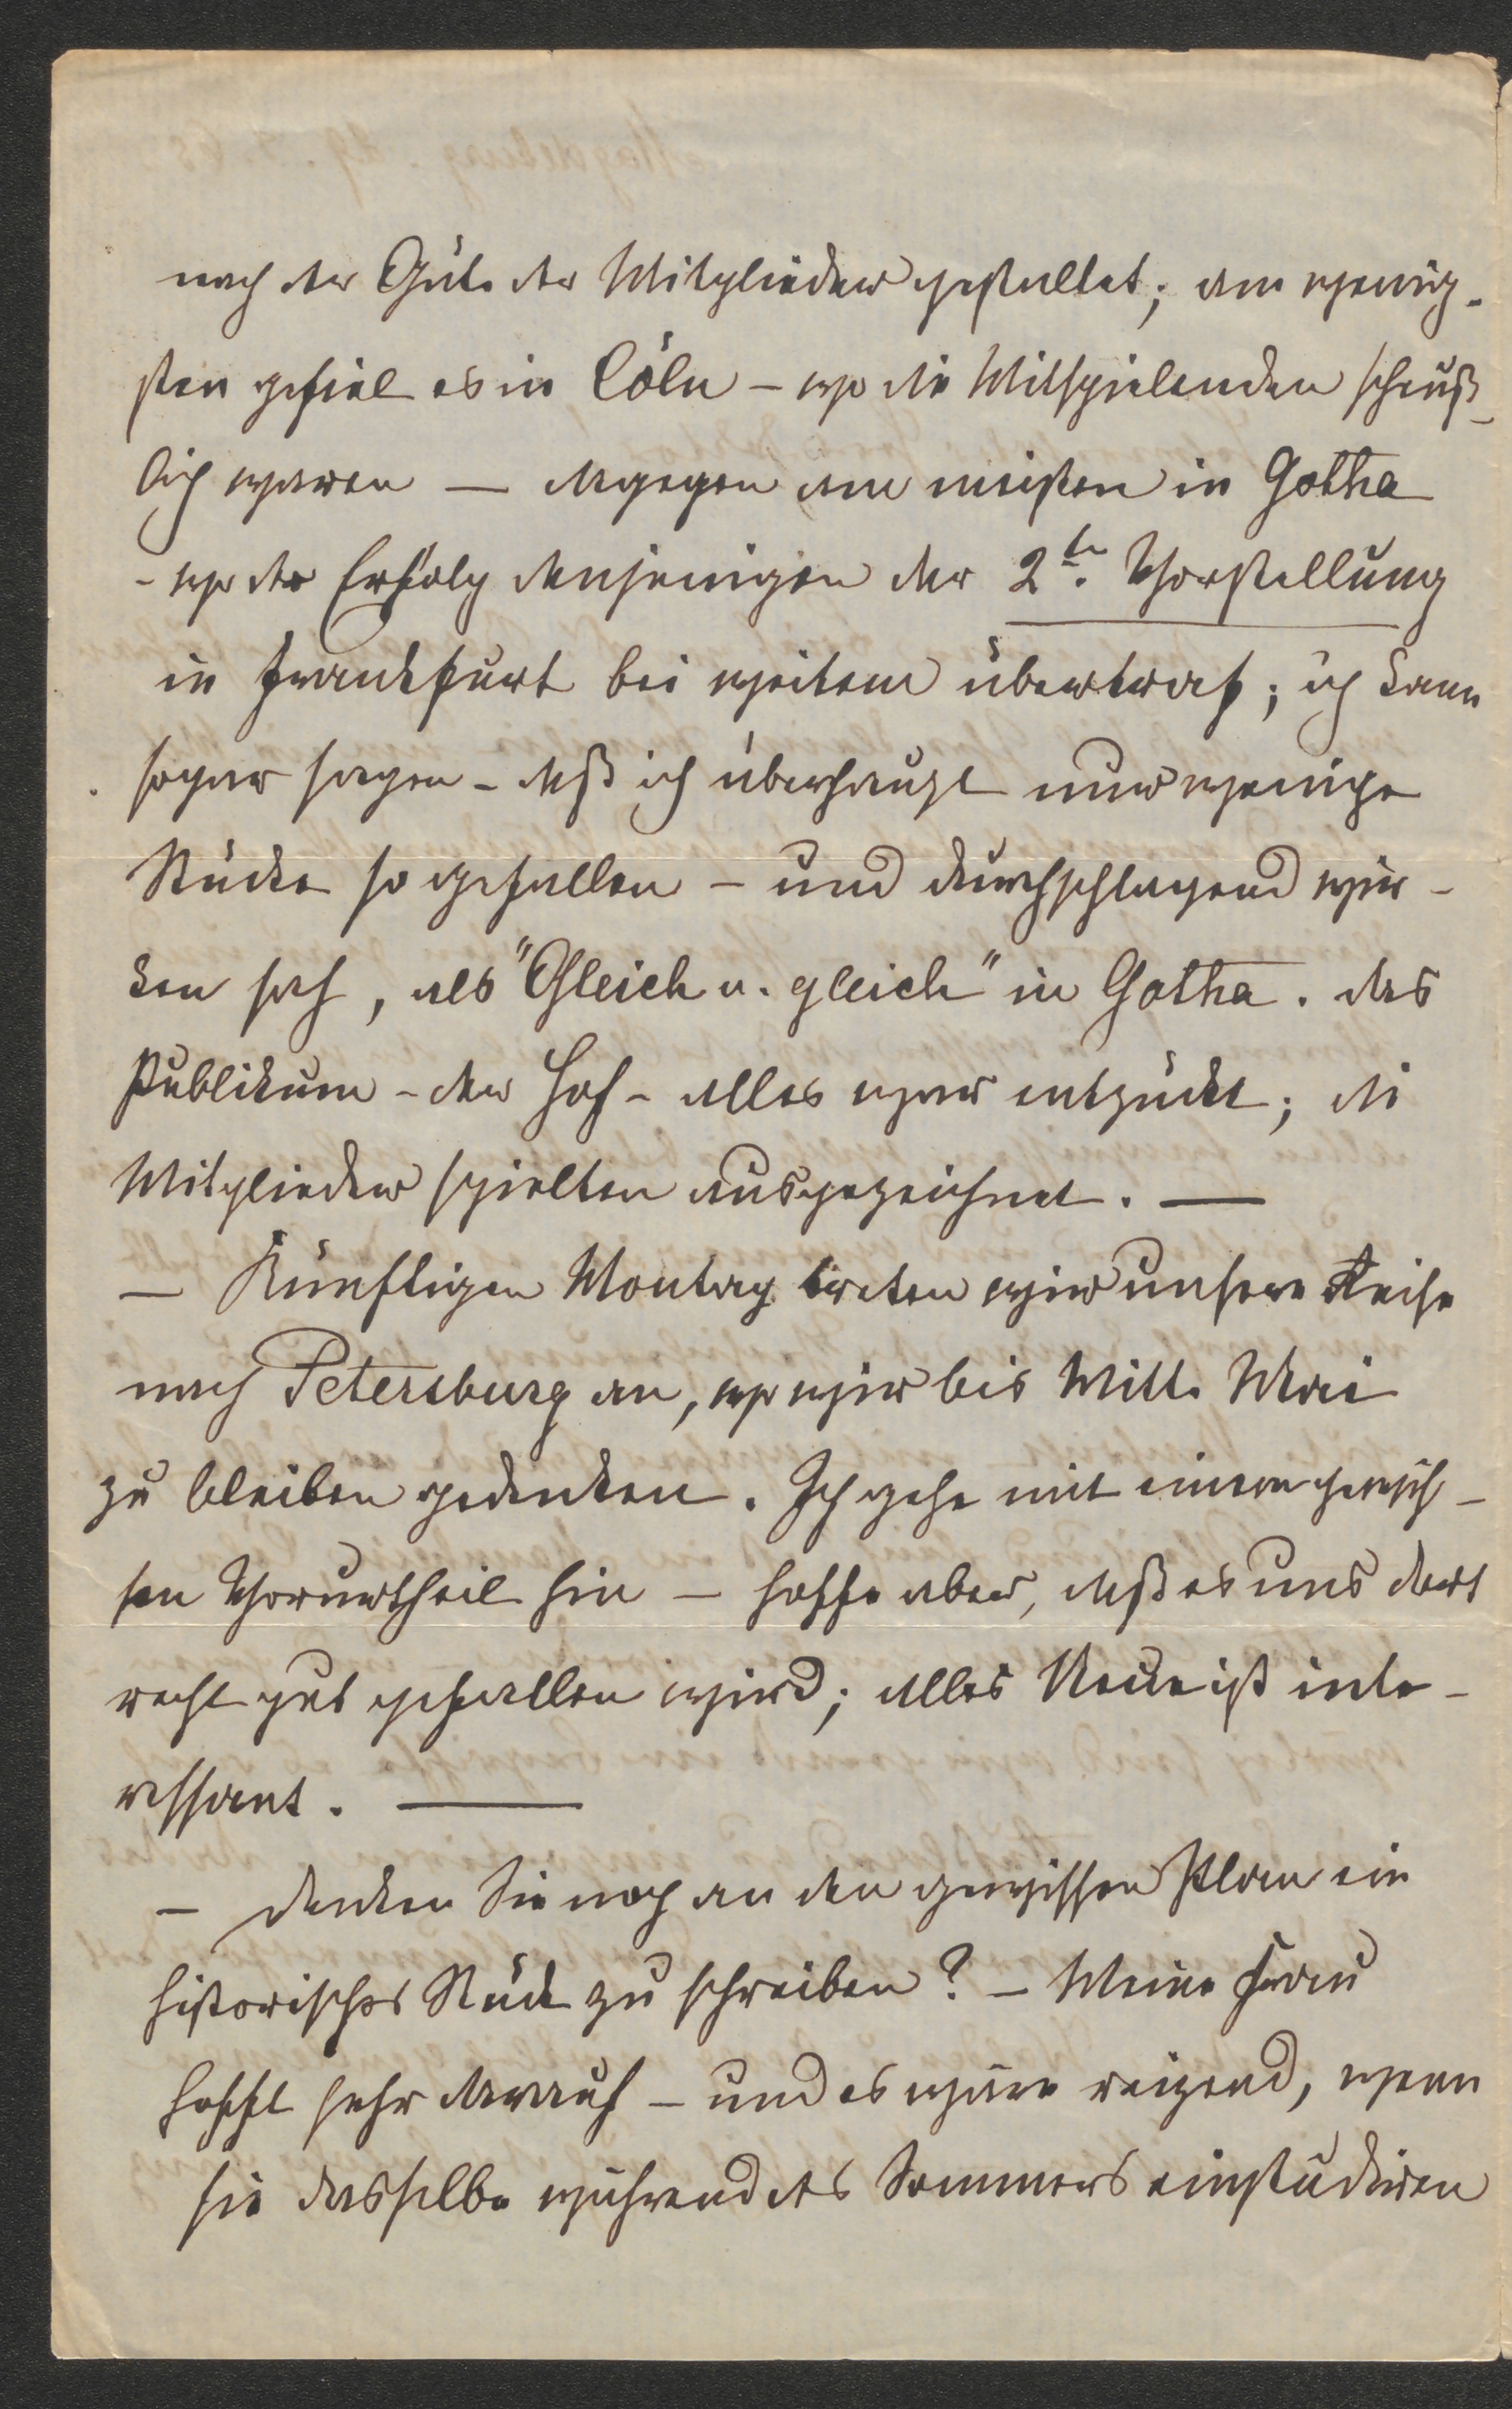 nach der Güte der Mitglieder gestaltet; am wenig-
sten gefiel es in Cöln – wo die Mitspielenden scheuß-
lich waren — dagegen am meisten in Gotha
– wo der Erfolg denjenigen der 2ten Vorstellung
in Frankfurt bei weitem übertraf; ich kann
sogar sagen – daß ich überhaupt nur wenige
Stücke so gefallen – und durchschlagend wir-
ken sah, als "Gleich u. gleich" in Gotha. das
Publikum – der Hof – alles war entzückt; die
Mitglieder spielten ausgezeichnet. —
— Künftigen Montag treten wir unsere Reise
nach Petersburg an, wo wir bis Mitte Mai
zu bleiben gedenken. Ich gehe mit einem gewis-
sen Vorurtheil hin — hoffe aber, daß es uns dort
recht gut gefallen wird; alles Neue ist inte-
ressant. —
— denken Sie noch an den gewissen Plan ein
historisches Stück zu schreiben? – Meine Frau
hofft sehr darauf – und es wäre reizend, wenn
sie dasselbe während des Sommers einstudiren